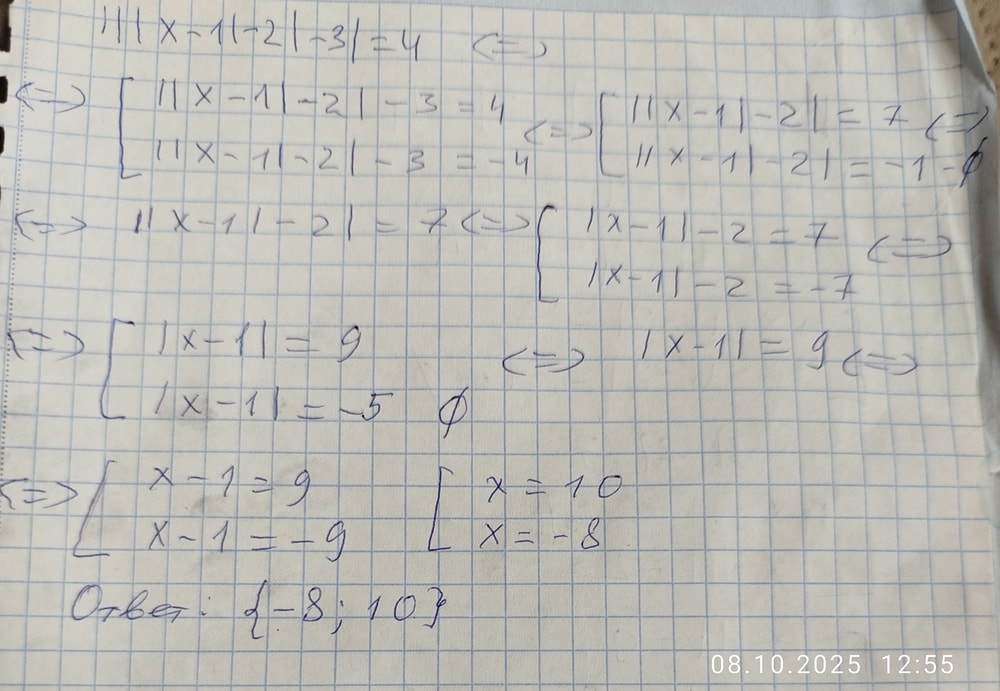 |||x-1|-2|-3|=4 <=>
<=> [ ||x-1|-2|-3=4 <=> [ ||x-1|-2|=7 <=>
||x-1|-2|-3=-4 ||x-1|-2|=-1-∅
<=> ||x-1|-2|=7 <=> [ |x-1|-2=7 <=>
|x-1|-2=-7
<=> [ |x-1|=9 <=> |x-1|=9 <=>
|x-1|=-5 ∅
<=> [ x-1=9 [ x=10
x-1=-9 x=-8
Ответ: {-8; 10}
08.10.2025 12:55